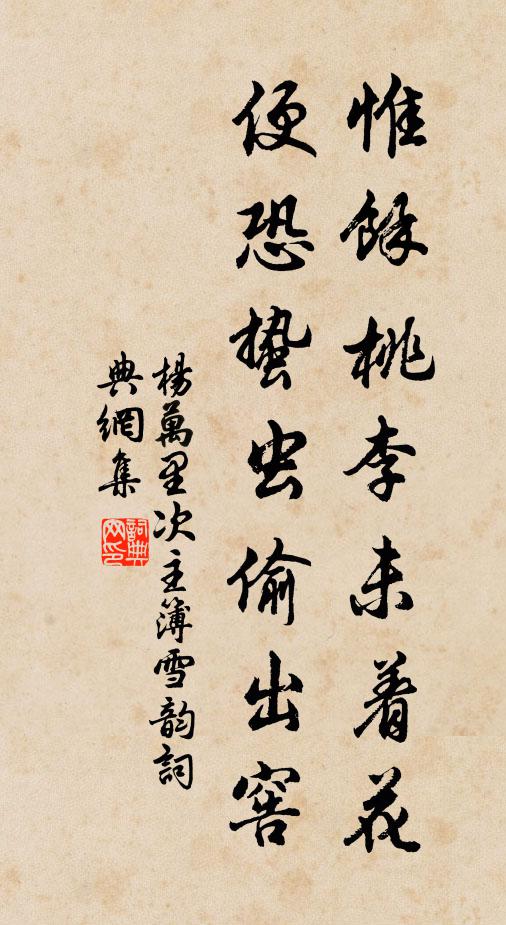 惟餘桃李未着花
便恐蟄虫偷出窖
楊萬里次主簿雪韵詞
典網集
詞典網印